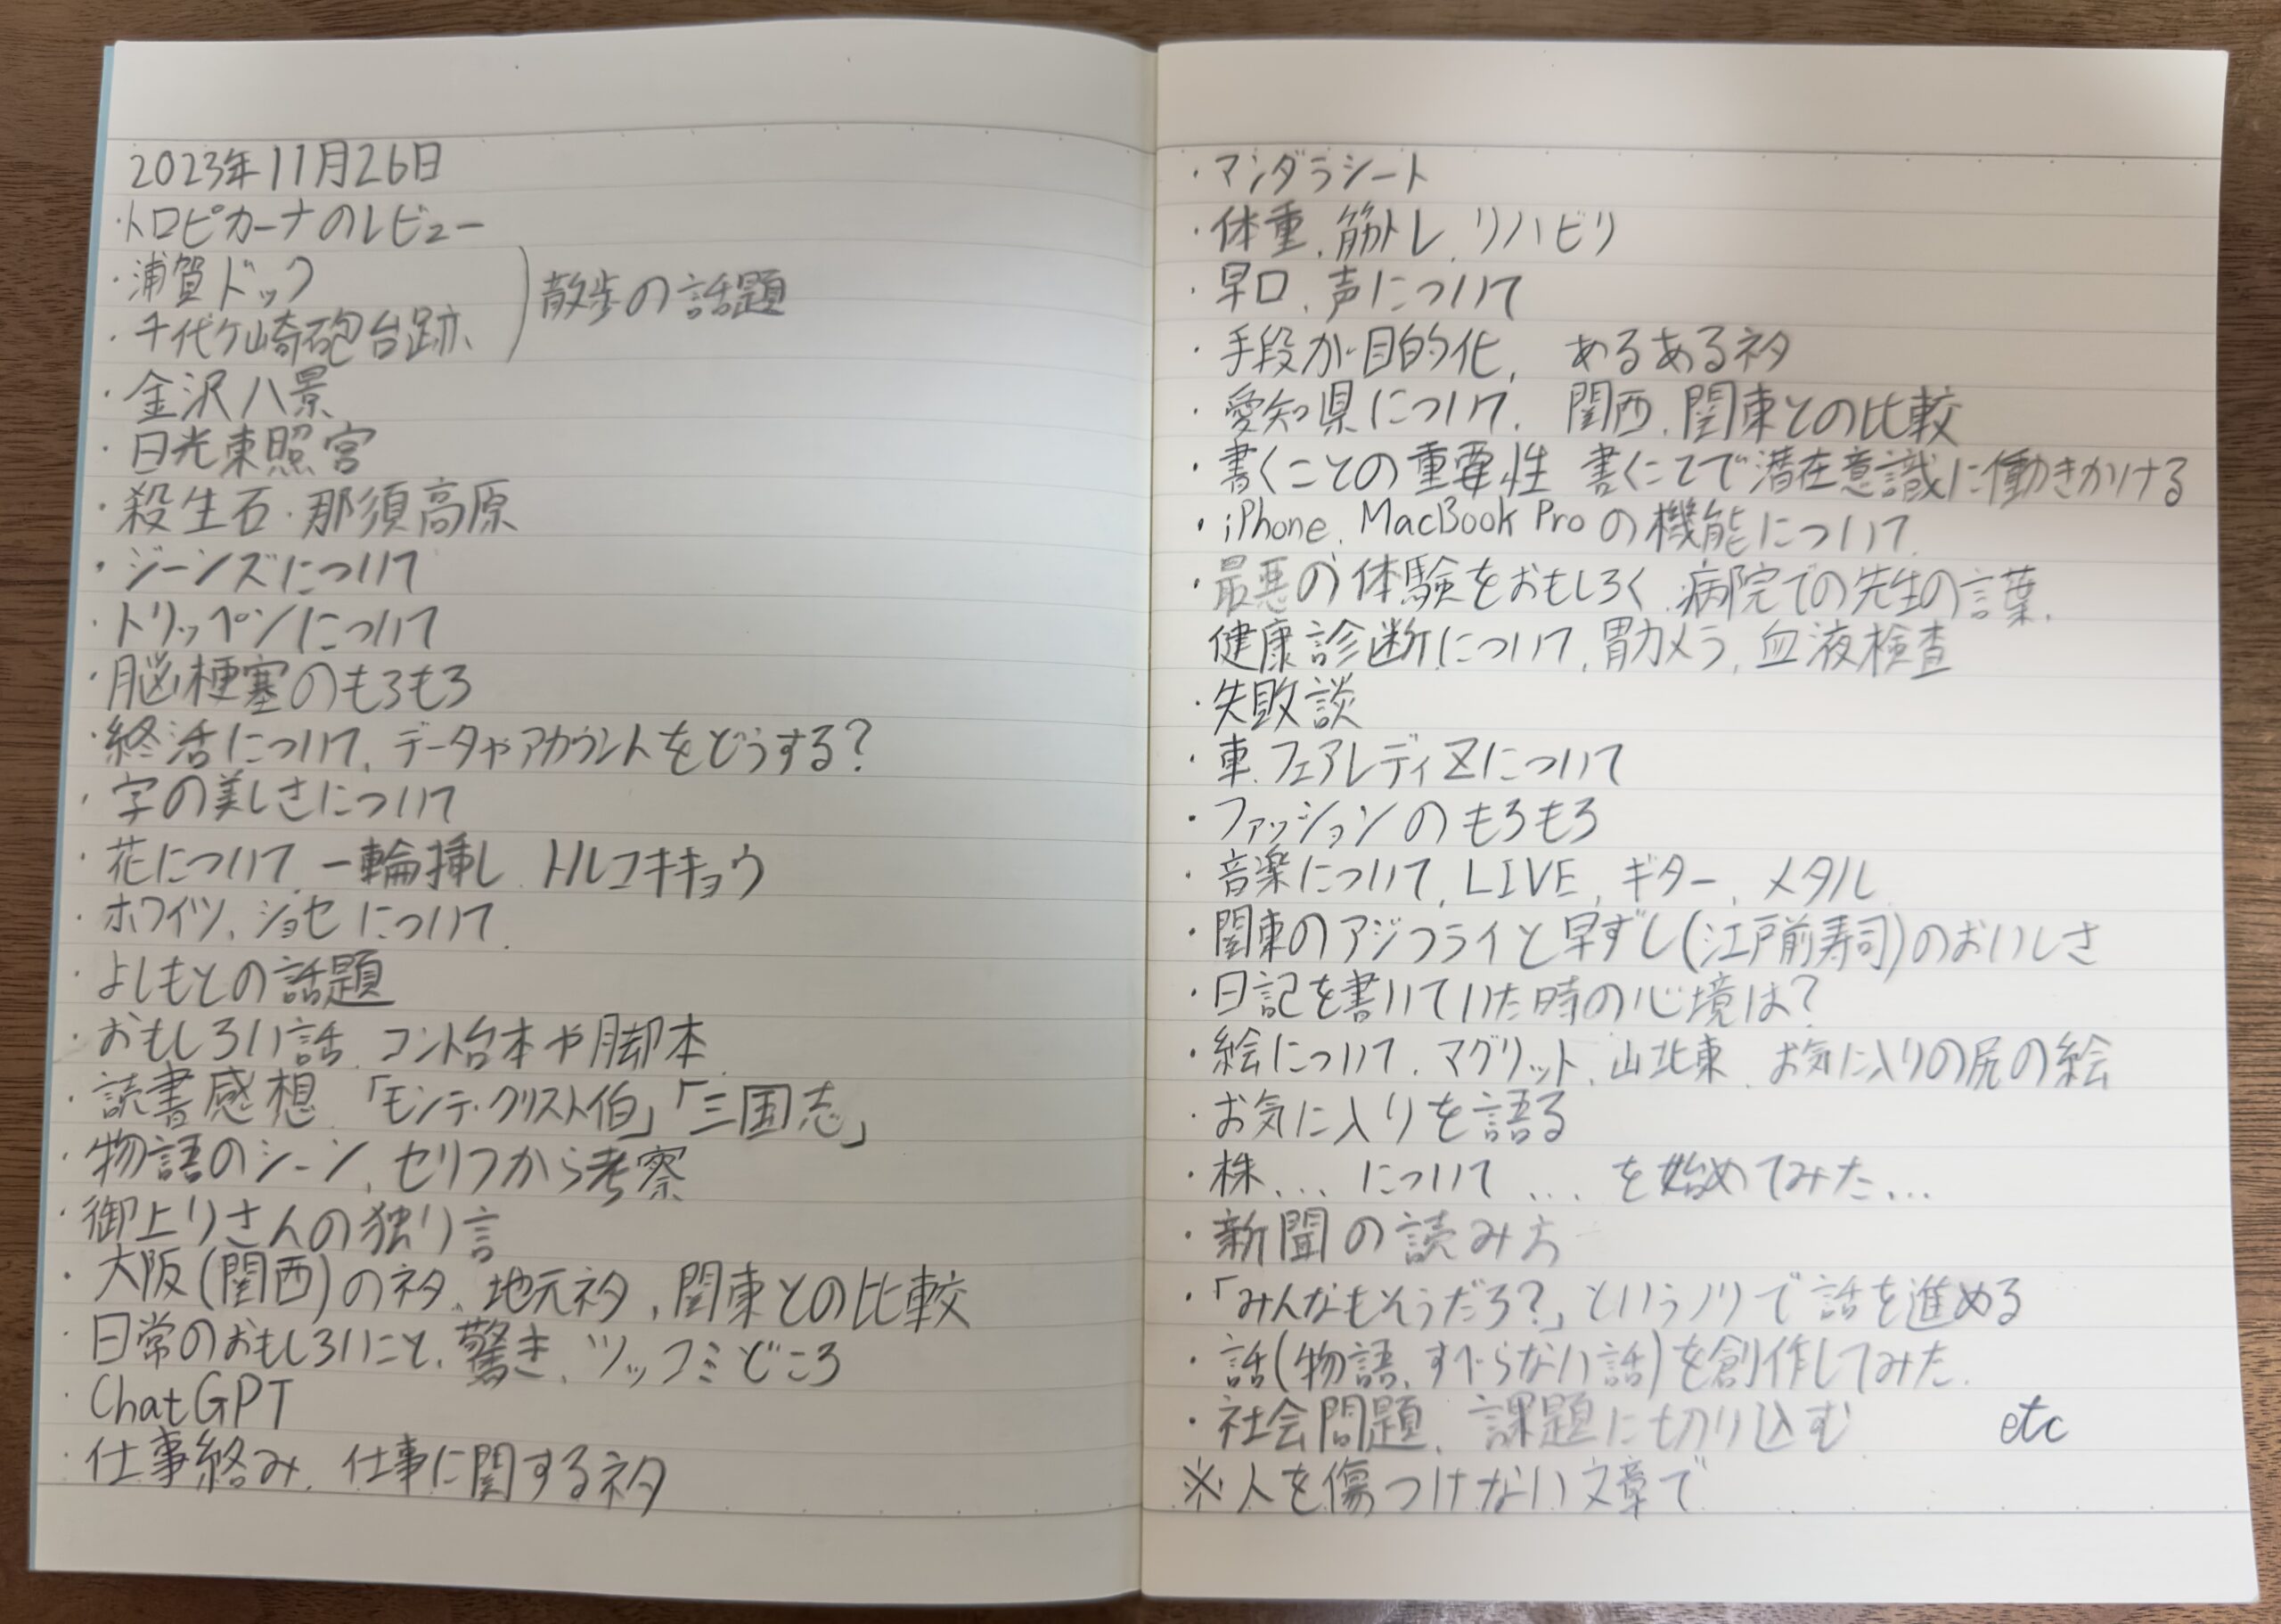 2023年11月26日
・トロピカーナのレビュー
・浦賀ドック
・千代ケ崎砲台跡
散歩の話題
・金沢八景
・日光東照宮
・殺生石・那須高原
・ジーンズについて
・トリッペンについて
・脳梗塞のもろもろ
・終活について、データやアカウントをどうする?
・字の美しさについて
・花について、一輪挿し、トルコキキョウ
・ホワイツ、ジョセについて、
・よしもとの話題
・おもしろい話、コント台本や脚本、
・読書感想、「モンテ・クリスト伯」「三国志」
・物語のシーン、セリフから考察
・御上りさんの独り言
・大阪(関西)のネタ、地元ネタ、関東との比較
・日常のおもしろいこと、驚き、ツッコミどころ
・ChatGPT
・仕事絡み、仕事に関するネタ
・マンダラシート
・体重、筋トレ、リハビリ
・早口、声について
・手段が目的化、あるあるネタ
・愛知県について、関西、関東との比較
・書くことの重要性 書くことで潜在意識に働きかける
・iPhone、MacBook Proの機能について、
・最悪の体験をおもしろく、病院での先生の言葉、
健康診断について、胃カメラ、血液検査
・失敗談
・車、フェアレディZについて
・ファッションのもろもろ
・音楽について、LIVE、ギター、メタル
・関東のアジフライと早ずし(江戸前寿司)のおいしさ
・日記を書いていた時の心境は?
・絵について、マグリット、山北東、お気に入りの尻の絵
・お気に入りを語る
・株...について ...を始めてみた...
・新聞の読み方
・「みんなもそうだろ?」というノリで話を進める
・話(物語、すべらない話)を創作してみた、
・社会問題、課題に切り込む etc
※人を傷つけない文章で